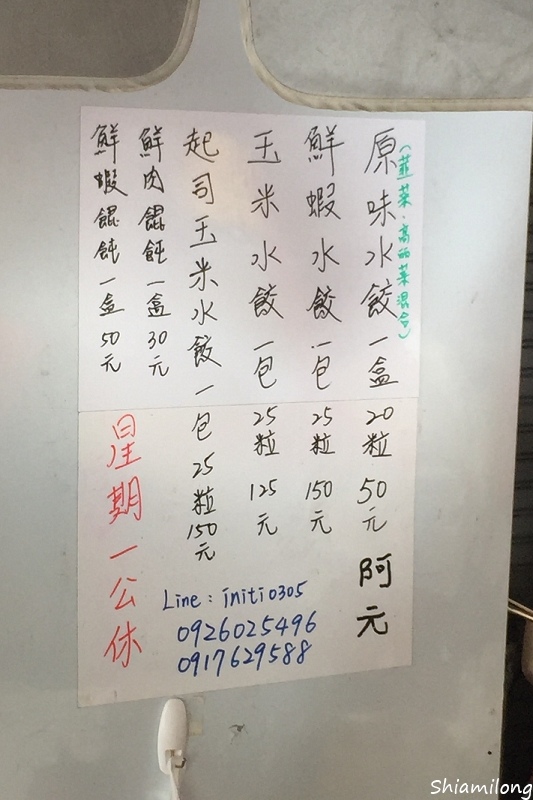 (韮菜、高品菜混合)
原味水餃一盒20粒50元 阿元
鮮蝦水餃一包25粒150元
玉米水餃一包25粒125元
起司玉米水餃一包25粒150元
鮮肉餛飩一盒30元
鮮蝦餛飩一盒50元
星期一公休
Line: initi0305
0926025496
0917629588
Shiamilong